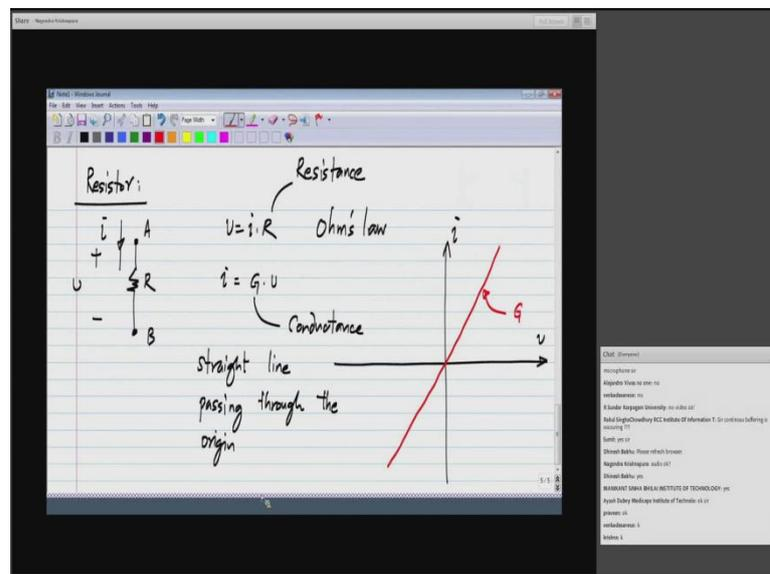 Share - Nagendra Krishnapura
Full Screen
Note1 - Windows Journal
File Edit View Insert Actions Tools Help
Page Width
Resistor:
Resistance
i
A
+
υ
R
-
B
υ = i.R
Ohm's law
i = G.υ
Conductance
straight line
passing through the
origin
i
υ
G
5/5
Chat (Everyone)
microphone sir
Alejandro Vivas no one: no
venkadasanese: no
R.Sundar Karpagam University: no video sir!
Rahul SinghaChowdhury RCC Institute Of Information T: Sir continous buffering is
occuring !!!!
Sumit: yes sir
Dhinesh Babhu: Please refresh browser
Nagendra Krishnapura: audio ok?
Dhinesh Babhu: yes
MANIKANT SINHA BHILAI INSTITUTE OF TECHNOLOGY: yes
Ayush Dubey Medicaps Institute of Technolo: ok sir
praveen: ok
venkadasanese: k
krishna: k